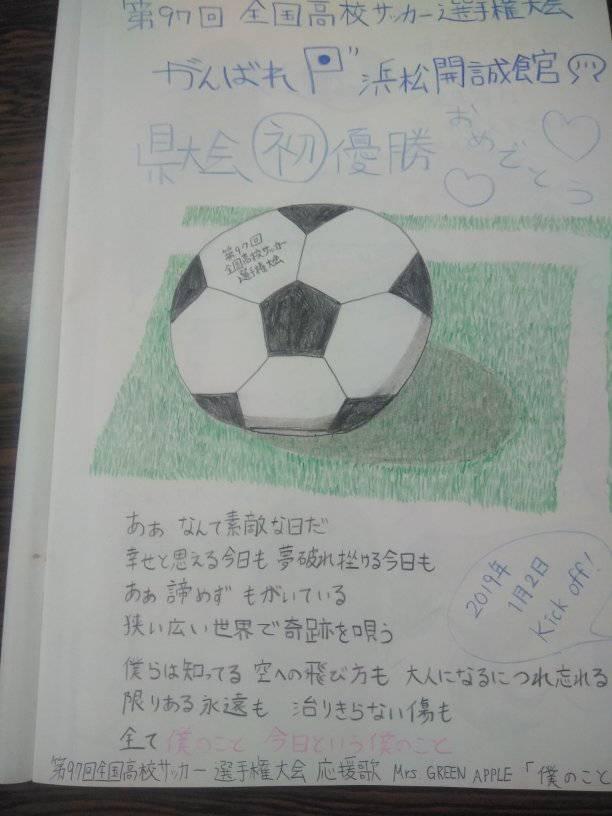 第97回 全国高校サッカー選手権大会
がんばれ 浜松開誠館
県大会 初 優勝 おめでとう
第97回
全国高校サッカー
選手権大会
あぁ なんて素敵な日だ
幸せと思える今日も 夢破れ挫ける今日も
あぁ 諦めず もがいている
狭い広い世界で奇跡を唄う
2019年
1月2日
Kick off!
僕らは知ってる 空への飛び方も 大人になるにつれ忘れる
限りある永遠も 治りきらない傷も
全て 僕のこと 今日という僕のこと
第97回全国高校サッカー選手権大会 応援歌 Mrs GREEN APPLE 「僕のこと